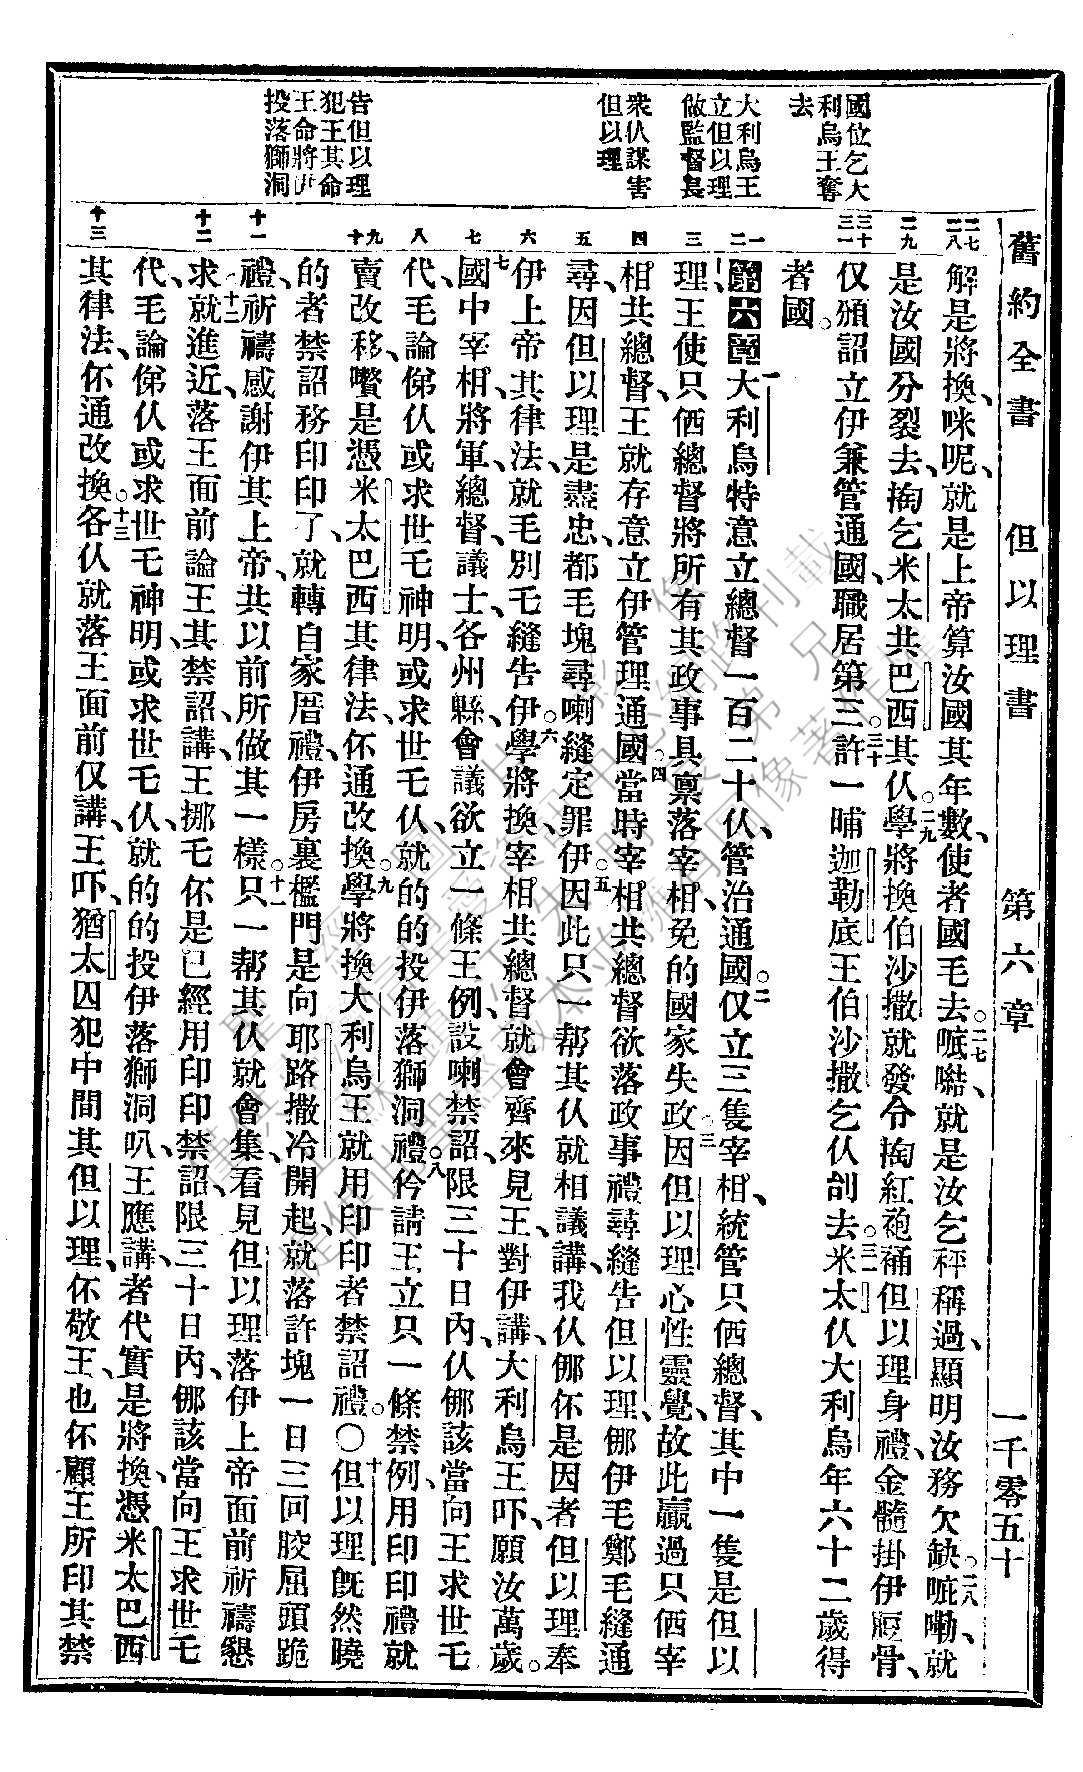 舊約全書 但以理書 第六章 一千零五十
國位乞大
利烏王奪
去
大利烏王
立但以理
做監督長
衆仇謀害
但以理
告但以理
犯王其命
王命將伊
投落獅洞
解是將換、咪呢、就是上帝算汝國其年數、使者國毛去。二七㖡嚡就是汝乞秤稱過、顯明汝務欠缺。二八㖡嘞、就
是汝國分裂去、掏乞米太共巴西其仈。二九學將換伯沙撒就發令掏紅袍褔但以理身禮、金髓掛伊脰骨、
仅頒詔立伊兼管通國、職居第三。三十許一晡迦勒底王伯沙撒乞仈刣去。三一米太仈大利烏年六十二歲得
者國。
第六章 一大利烏特意立總督一百二十仈、管治通國。二仅立三隻宰相、統管只㑚總督、其中一隻是但以
理、王使只㑚總督將所有其政事具稟落宰相、免的國家失政。三因但以理心性靈覺、故此贏過只㑚宰
相共總督、王就存意立伊管理通國。四當時宰相共總督欲落政事禮尋縫告但以理、㑚伊毛鄭毛縫通
尋、因但以理是盡忠、都毛塊尋喇縫定罪伊。五因此只一帮其仈就相議講、我仈㑚伓是因者但以理奉
伊上帝其律法、就毛別乇縫告伊。六學將換、宰相共總督就會齊來見王、對伊講、大利烏王吓、願汝萬歲。
七國中宰相、將軍、總督、議士、各州縣、會議欲立一條王例、設喇禁詔、限三十日內、仈㑚該當向王求世乇
代、毛論俤仈或求世乇神明、或求世乇仈、就的的投伊落獅洞禮。八仱請王立只一條禁例、用印印禮、就
賣改移、嚽是憑米太巴西其律法、伓通改換。九學將換大利烏王就用印印者禁詔禮。〇十但以理旣然曉
的者禁詔務印印了、就轉自家厝禮、伊房裏檻門是向耶路撒冷開起、就落許塊一日三回骹屈頭跪
禮、祈禱感謝伊其上帝、共以前所做其一樣。十一只一帮其仈就會集、看見但以理落伊上帝面前祈禱懇
求。十二就進近落王面前論王其禁詔、講、王挪毛伓是已經用印印禁詔、限三十日內、㑚該當向王求世乇
代、毛論俤仈或求世乇神明、或求世乇仈、就的的投伊落獅洞叭、王應講、者代實是將換、憑米太巴西
其律法、伓通改換。十三各仈就落王面前仅講、王吓、猶太囚犯中間其但以理、伓敬王、也伓顧王所印其禁